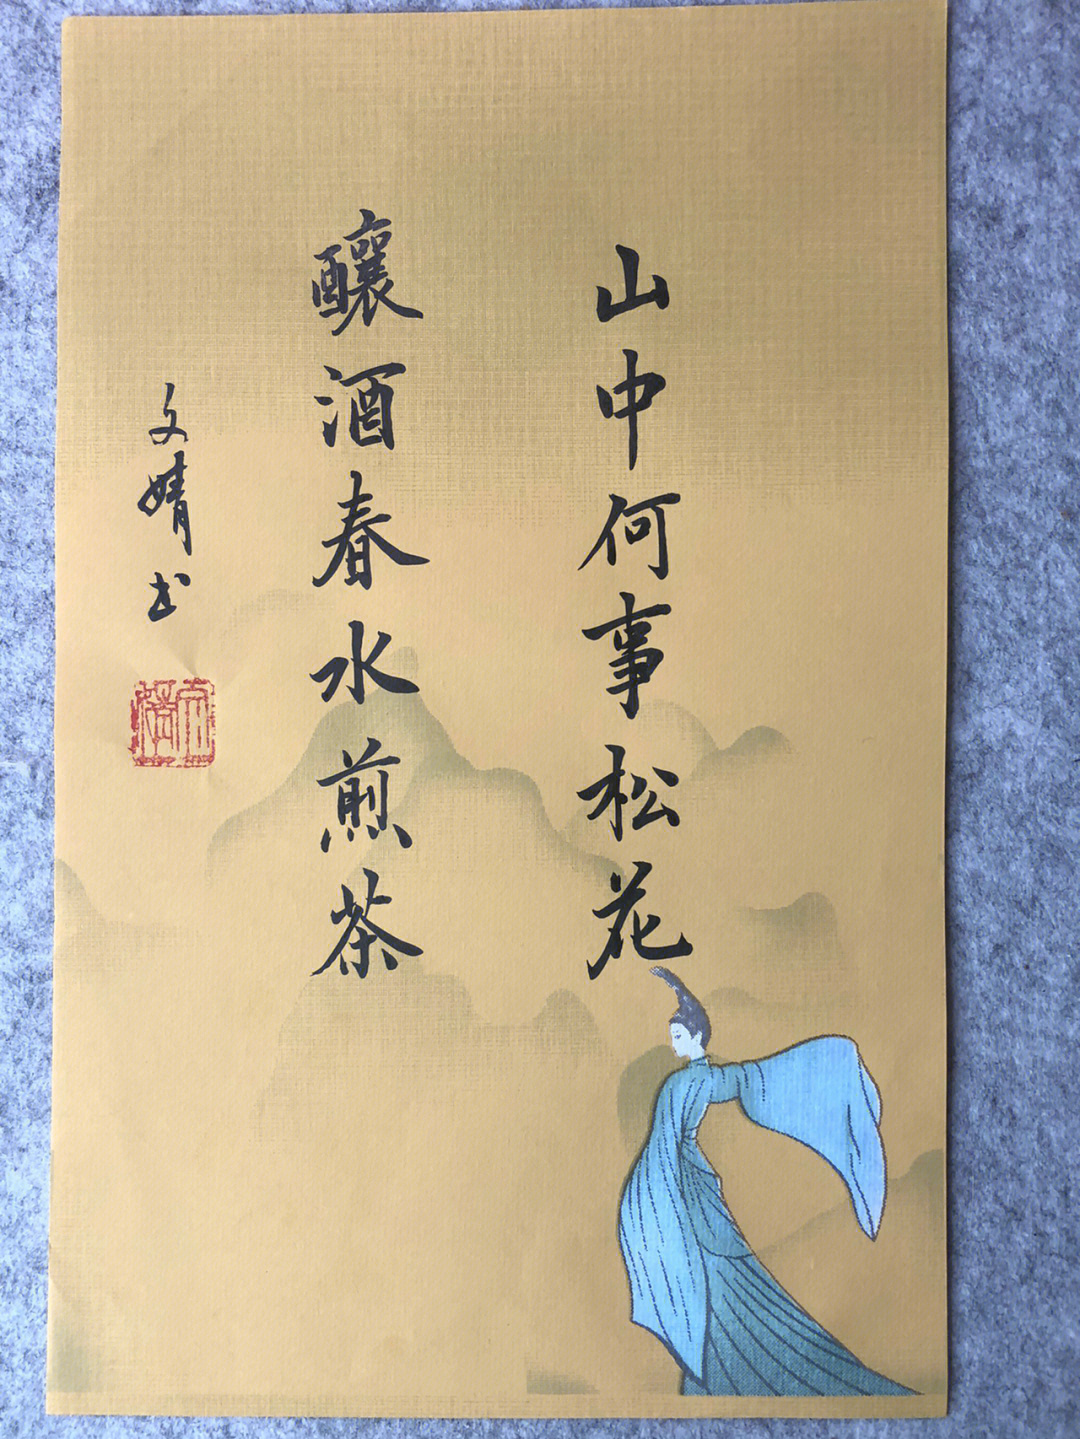 山中何事松花
釀酒春水煎茶
文婧书